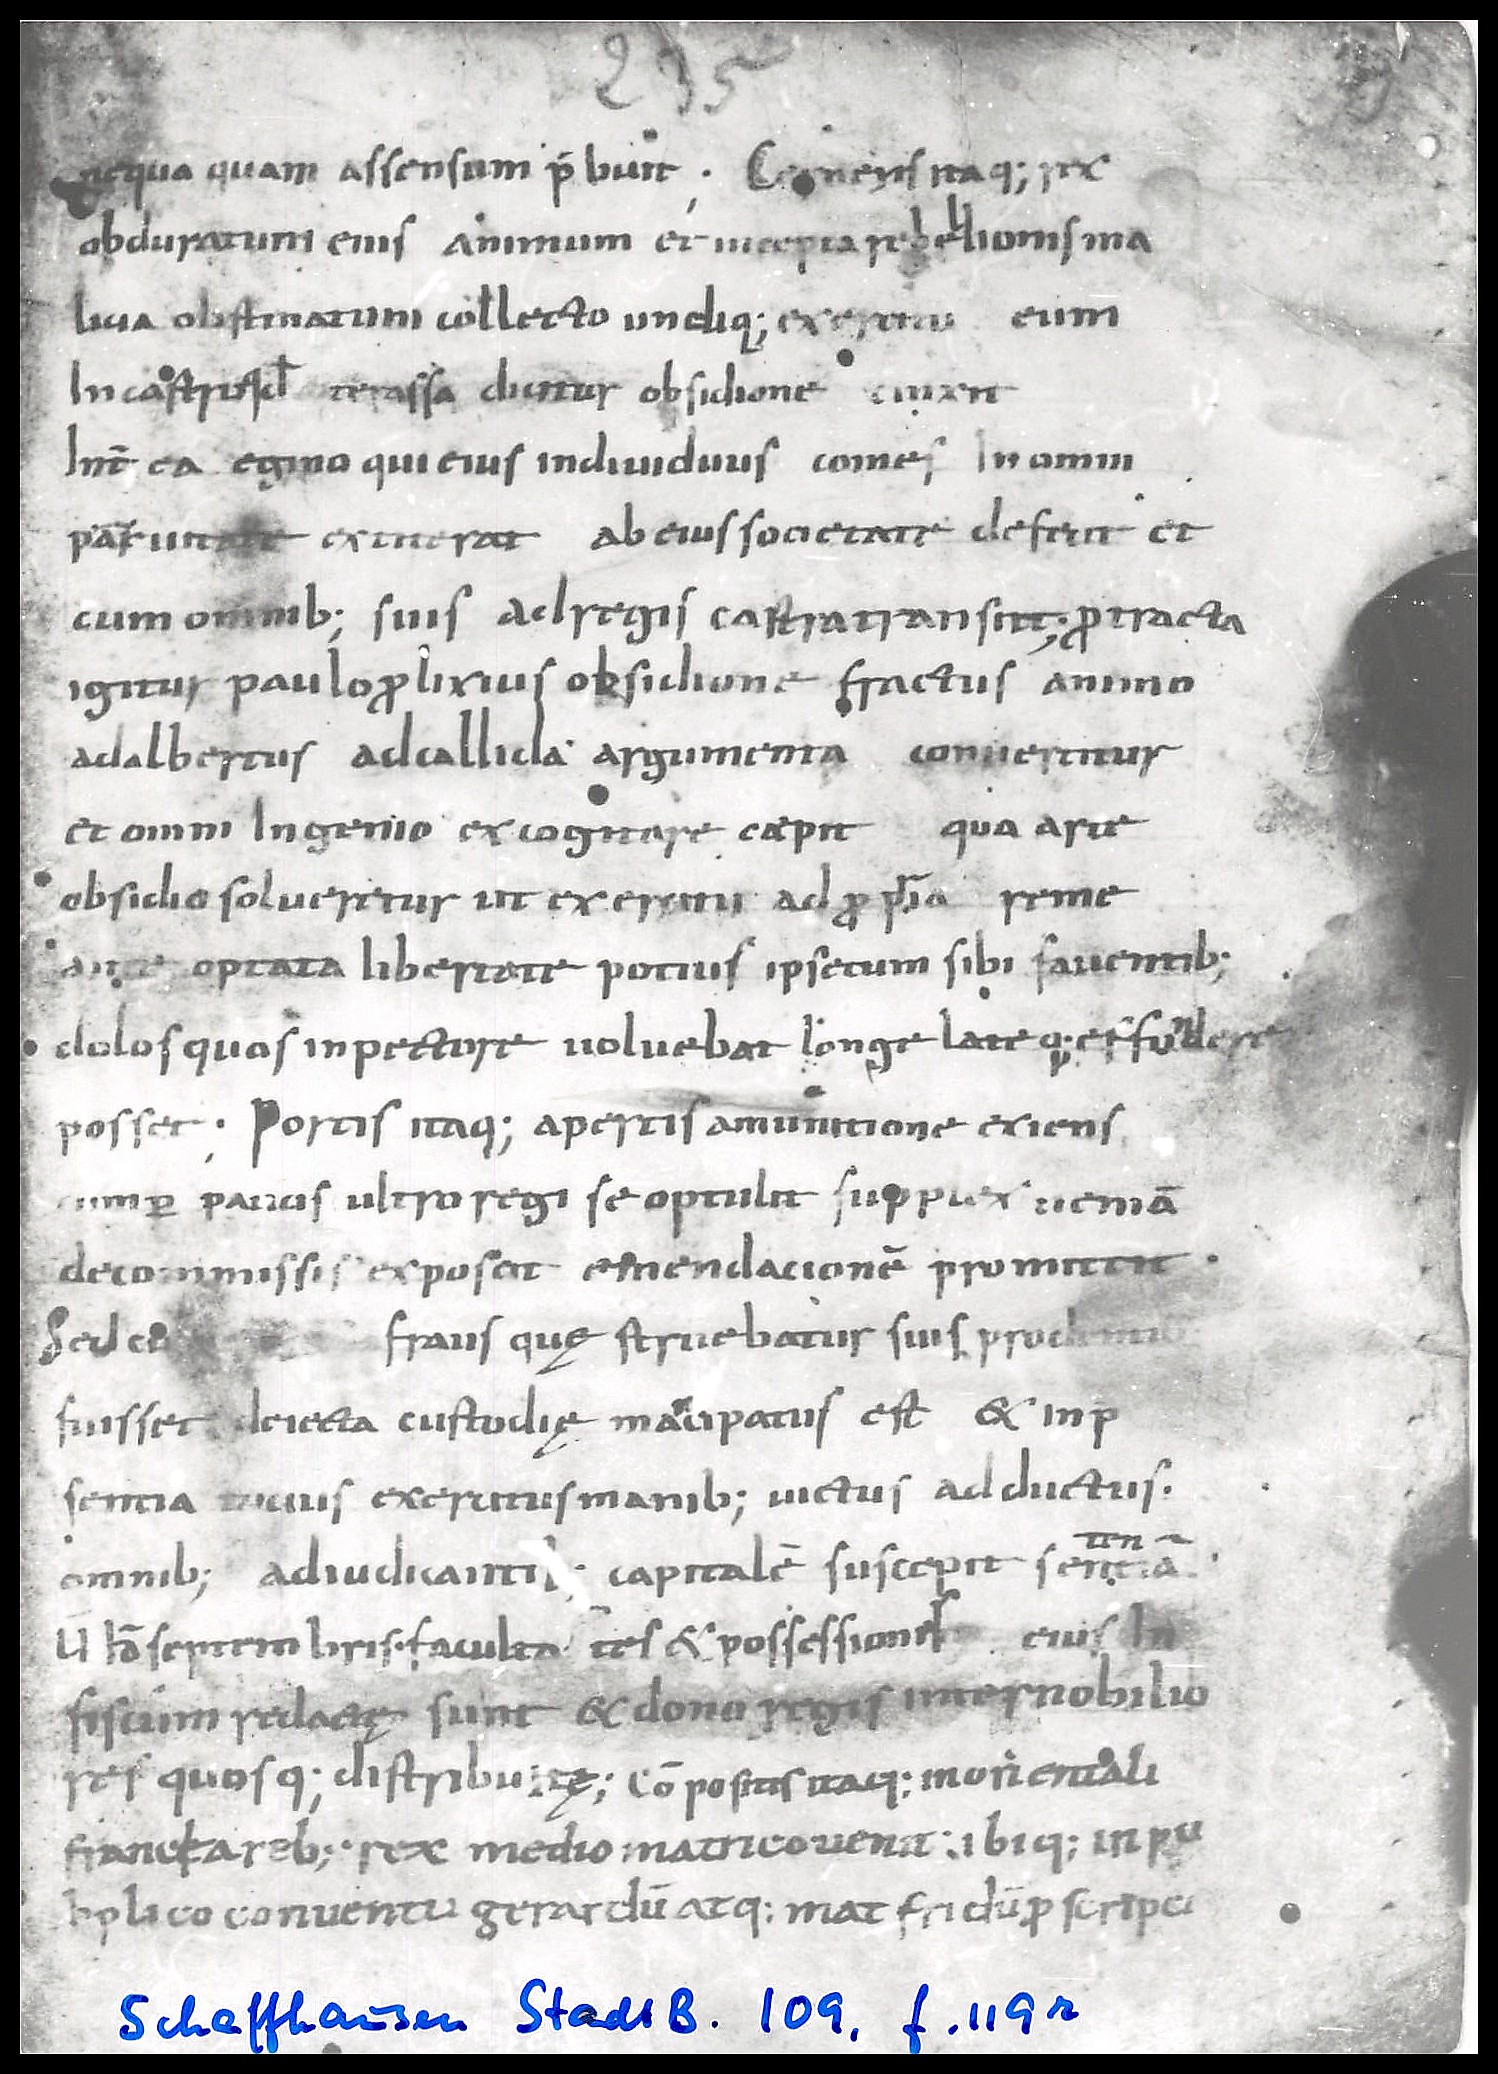 235
nequaquam assensum p̄buit . Cernens itaq; rex
obduratum eius animum et incepta rebellionis ma
licia obstinatum collecto undiq; exercitu eum
In castro qd terassa dicitur obsidione cinxit
Int̄ ea egino qui eius individuus comes In omni
extiterat ab eius societate defecit et
cum omnib; suis ad regis castra transiit; ꝓtracta
igitur pauloꝓlixius obsidione fractus animo
adalbertus ad callida argumenta convertitur
et omni Ingenio excogitare cæpit qua arte
obsidio solveretur ut exercitu ad ꝓpria reme
ante optata libertate potius ipse cum sibi faventib;
dolos quos in pectore volvebat longe lateq; effundere
posset . Portis itaq; apertis a munitione exiens
cum ꝑ paucis ultro regi se optulit supplex veniā
de commissis exposcit emendacionē promittit .
Sed fraus quę struebatur suis
fuisset deiecta custodię mancipatus est & in p
sentia tocius exercitus manib; victus adductus.
omnib; adiudicantib; capitalē suscepit sententiā.
V id septembris. facultates & possessiones eius In
fiscum redactę sunt & dono regis inter nobilio
res quosq; distributę; Cōpositis itaq; in orientali
francia reb; rex mediomatrico venit. ibiq; in pu
bplico conventu gerardū atq; matfridū ꝓscripci
Schaffhausen StadtB. 109, f.119r